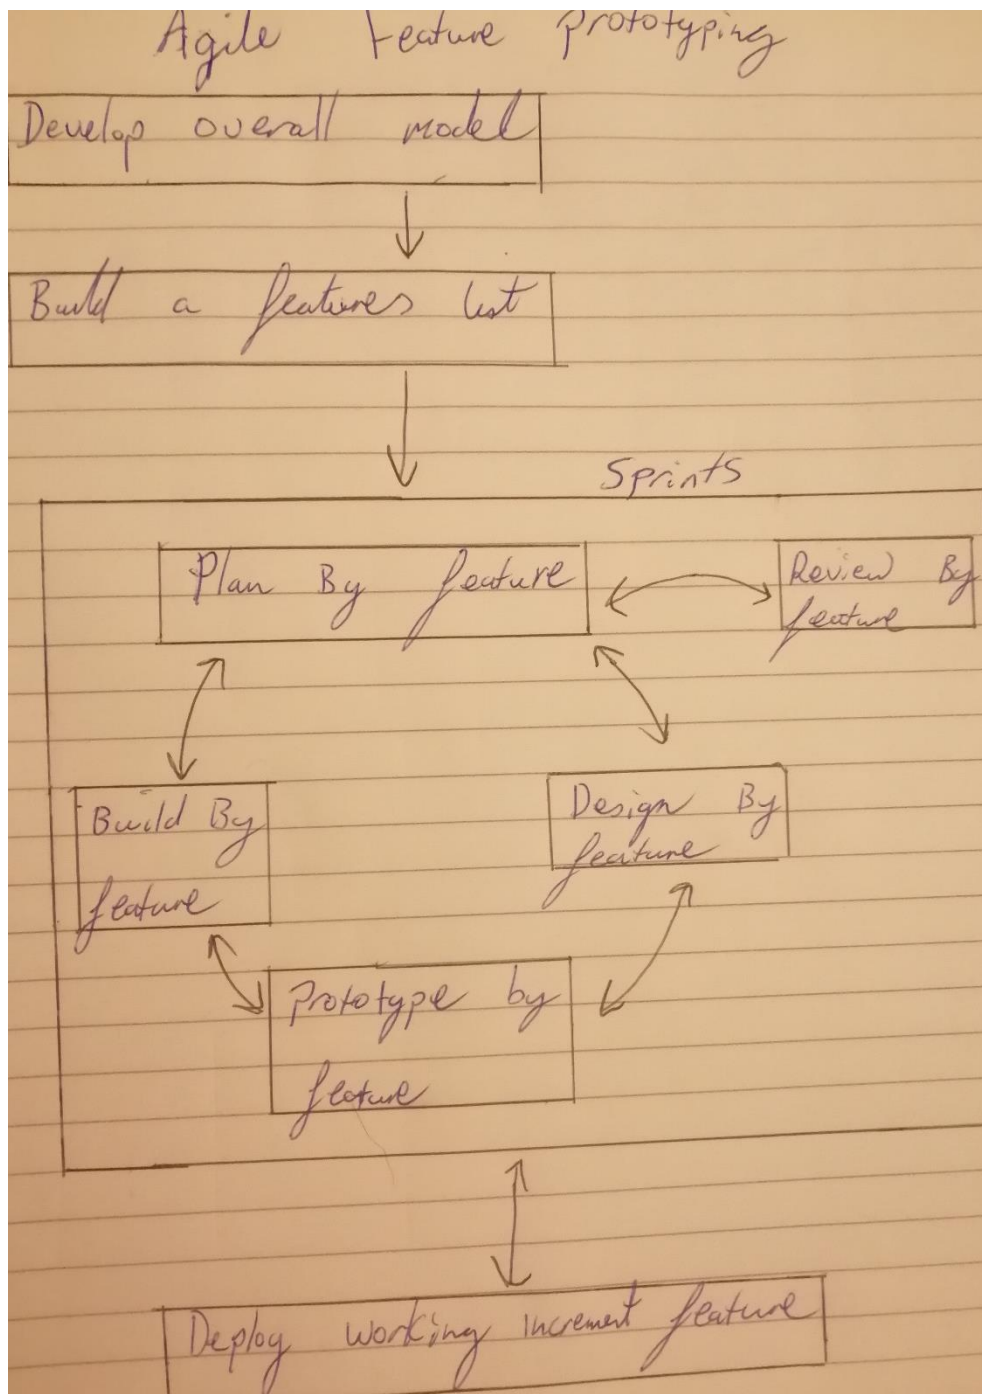 Agile Feature Prototyping
Develop overall model
Build a features list
Sprints
Plan By feature
Review By
feature
Build By
feature
Design By
feature
Prototype by
feature
Deploy working increment feature